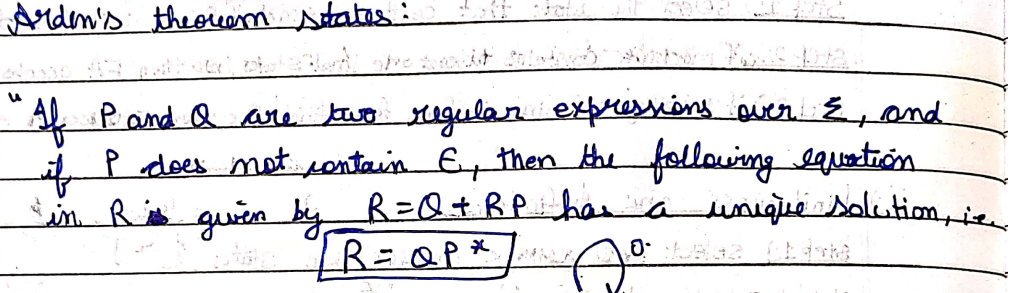 Arden's theorem states:
"If P and Q are two regular expressions over Σ, and
if P does not contain ϵ, then the following equation
in R is given by R=Q+RP has a unique solution, i.e.
R = QP*
0.